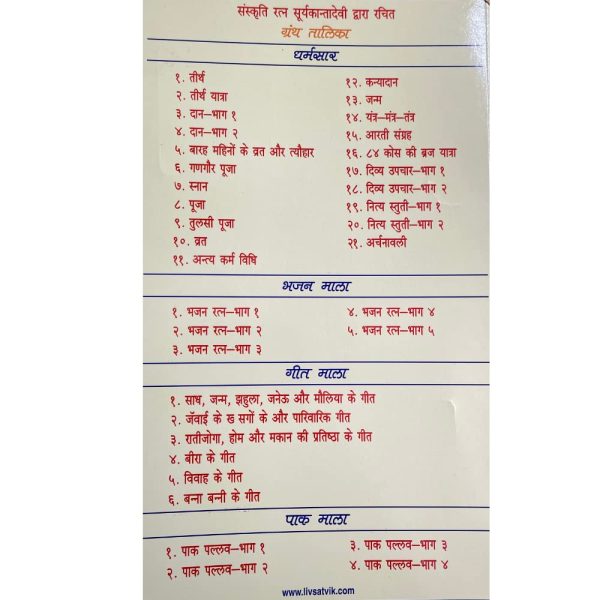 संस्कृति रत्न सूर्यकान्तादेवी द्वारा रचित
ग्रंथ तालिका
धर्मसार
१. तीर्थ
२. तीर्थ यात्रा
३. दान–भाग १
४. दान–भाग २
५. बारह महिनों के व्रत और त्यौहार
६. गणगौर पूजा
७. स्नान
८. पूजा
९. तुलसी पूजा
१०. व्रत
११. अन्त्य कर्म विधि
१२. कन्यादान
१३. जन्म
१४. यंत्र–मंत्र–तंत्र
१५. आरती संग्रह
१६. ८४ कोस की ब्रज यात्रा
१७. दिव्य उपचार–भाग १
१८. दिव्य उपचार–भाग २
१९. नित्य स्तुती–भाग १
२०. नित्य स्तुती–भाग २
२१. अर्चनावली
भजन माला
१. भजन रत्न–भाग १
२. भजन रत्न–भाग २
३. भजन रत्न–भाग ३
४. भजन रत्न–भाग ४
५. भजन रत्न–भाग ५
गीत माला
१. साध, जन्म, झहुला, जनेऊ और मौलिया के गीत
२. जँवाई के ख सगों के और पारिवारिक गीत
३. रातीजोगा, होम और मकान की प्रतिष्ठा के गीत
४. बीरा के गीत
५. विवाह के गीत
६. बन्ना बन्नी के गीत
पाक माला
१. पाक पल्लव–भाग १
२. पाक पल्लव–भाग २
३. पाक पल्लव–भाग ३
४. पाक पल्लव–भाग ४
www.livsatvik.com